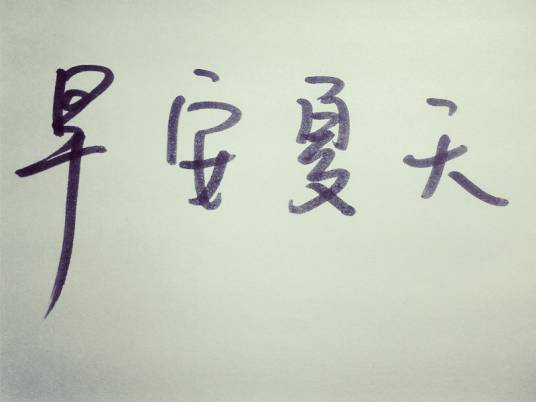 早安夏天